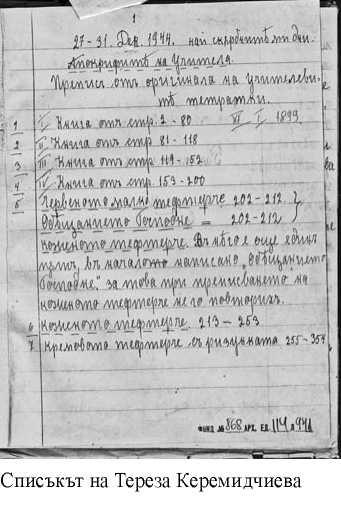 1
27-31. Дек. 1944. най скръбнитѣ ми дни.
Апокрифитѣ на Учителя.
Преписъ отъ оригинала на учителеви-
тѣ тетрадки.
1 I Книга отъ стр. 2-80 VII I 1899
2 II Книга отъ стр 81-118
3 III Книга отъ стр 119-152
4 IV Книга отъ стр. 153-200
5 Червеното малко тефтерче 202-212.
Обѣщанието Господне = 202-212
коженото тефтерче. Въ нѣго е още единъ
пѫть, въ началото написано „обѣщанието
Господне", за това при преписването на
коженото тефтерче не го повторихъ.
6 Коженото тефтерче. 213-253
7 Кремовото тефтерче съ рисунката 255-354
ФОНД № 868 АРХ. ЕД. 114 Л 941
Списъкът на Тереза Керемидчиева